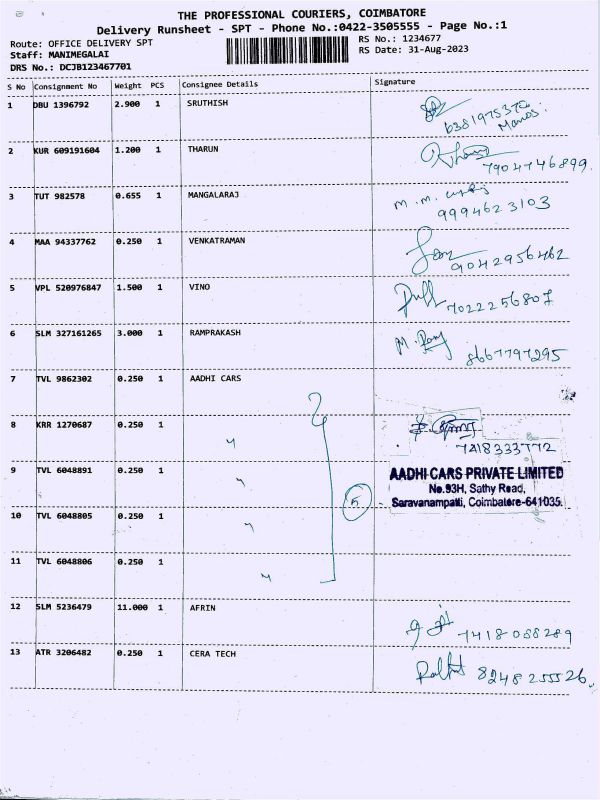 THE PROFESSIONAL COURIERS, COIMBATORE
Delivery Runsheet - SPT - Phone No.:0422-3505555 - Page No.:1
Route: OFFICE DELIVERY SPT
RS No.: 1234677
Staff: MANIMEGALAI
RS Date: 31-Aug-2023
DRS No.: DCJB123467701
S No Consignment No Weight PCS Consignee Details Signature
1 DBU 1396792 2.900 1 SRUTHISH
Manos.
2 KUR 609191604 1.200 1 THARUN
7904746899.
3 TUT 982578 0.655 1 MANGALARAJ
9994623103
4 MAA 94337762 0.250 1 VENKATRAMAN
9042956462
5 VPL 520976847 1.500 1 VINO
7022256807
6 SLM 327161265 3.000 1 RAMPRAKASH
M. Ram
8667797295
7 TVL 9862302 0.250 1 AADHI CARS
8 KRR 1270687 0.250 1 "
7418333772
9 TVL 6048891 0.250 1 "
5
AADHI CARS PRIVATE LIMITED
No.93H, Sathy Road,
Saravanampatti, Coimbatore-641035.
10 TVL 6048805 0.250 1 "
11 TVL 6048806 0.250 1 "
12 SLM 5236479 11.000 1 AFRIN
7418088289
13 ATR 3206482 0.250 1 CERA TECH
8248255526.